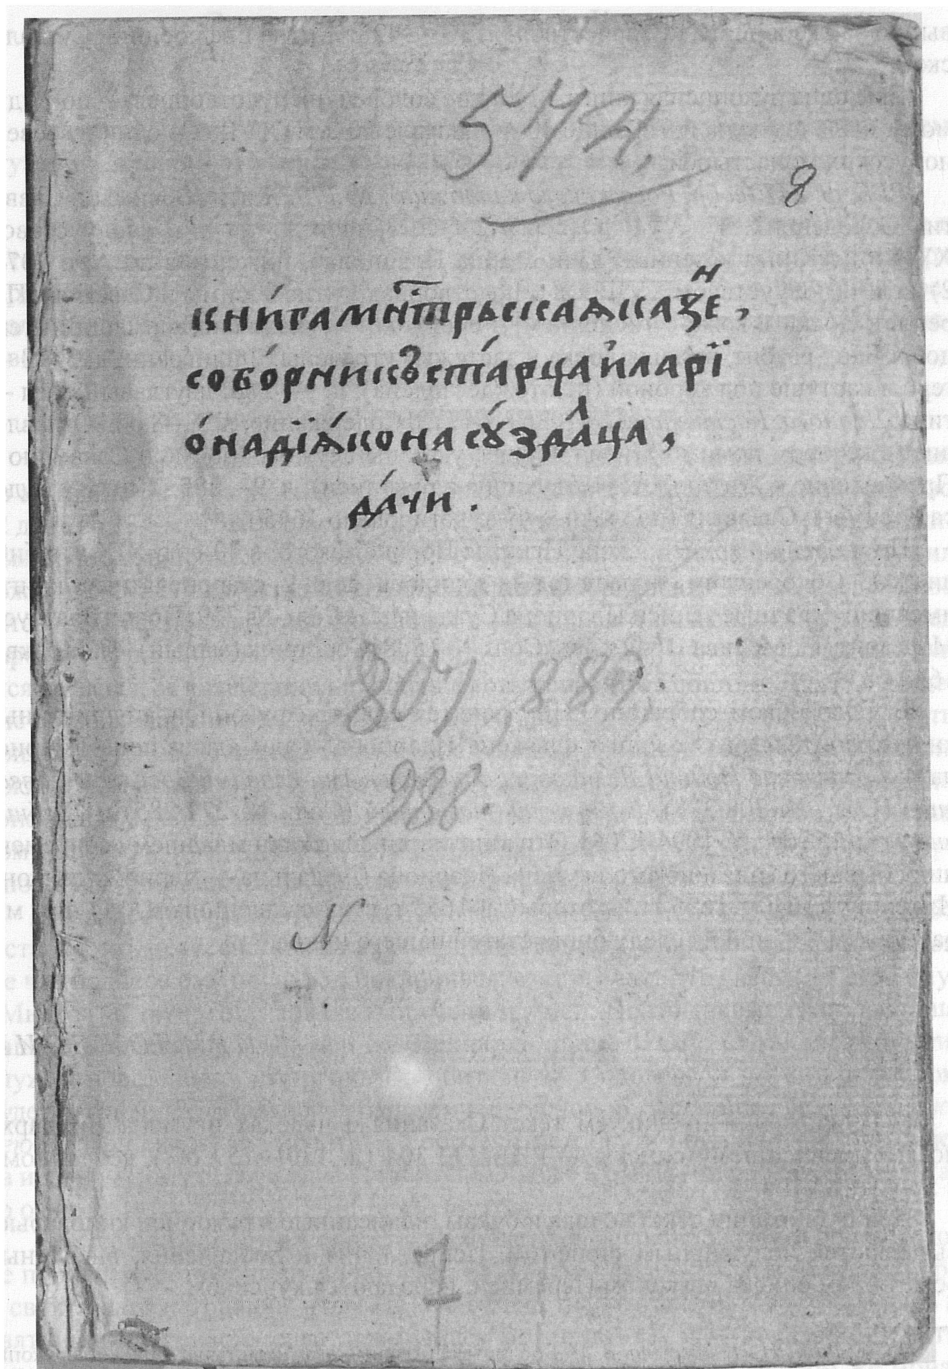 572
8
кни́гамнтⷭ҇рьскаѧ́казеⷩ҇,
собо́рникъста́рцаиларї
ѡ́надїѧ́конасꙋ́здаⷧца,
да́чи.
807, 889,
988.
N
1